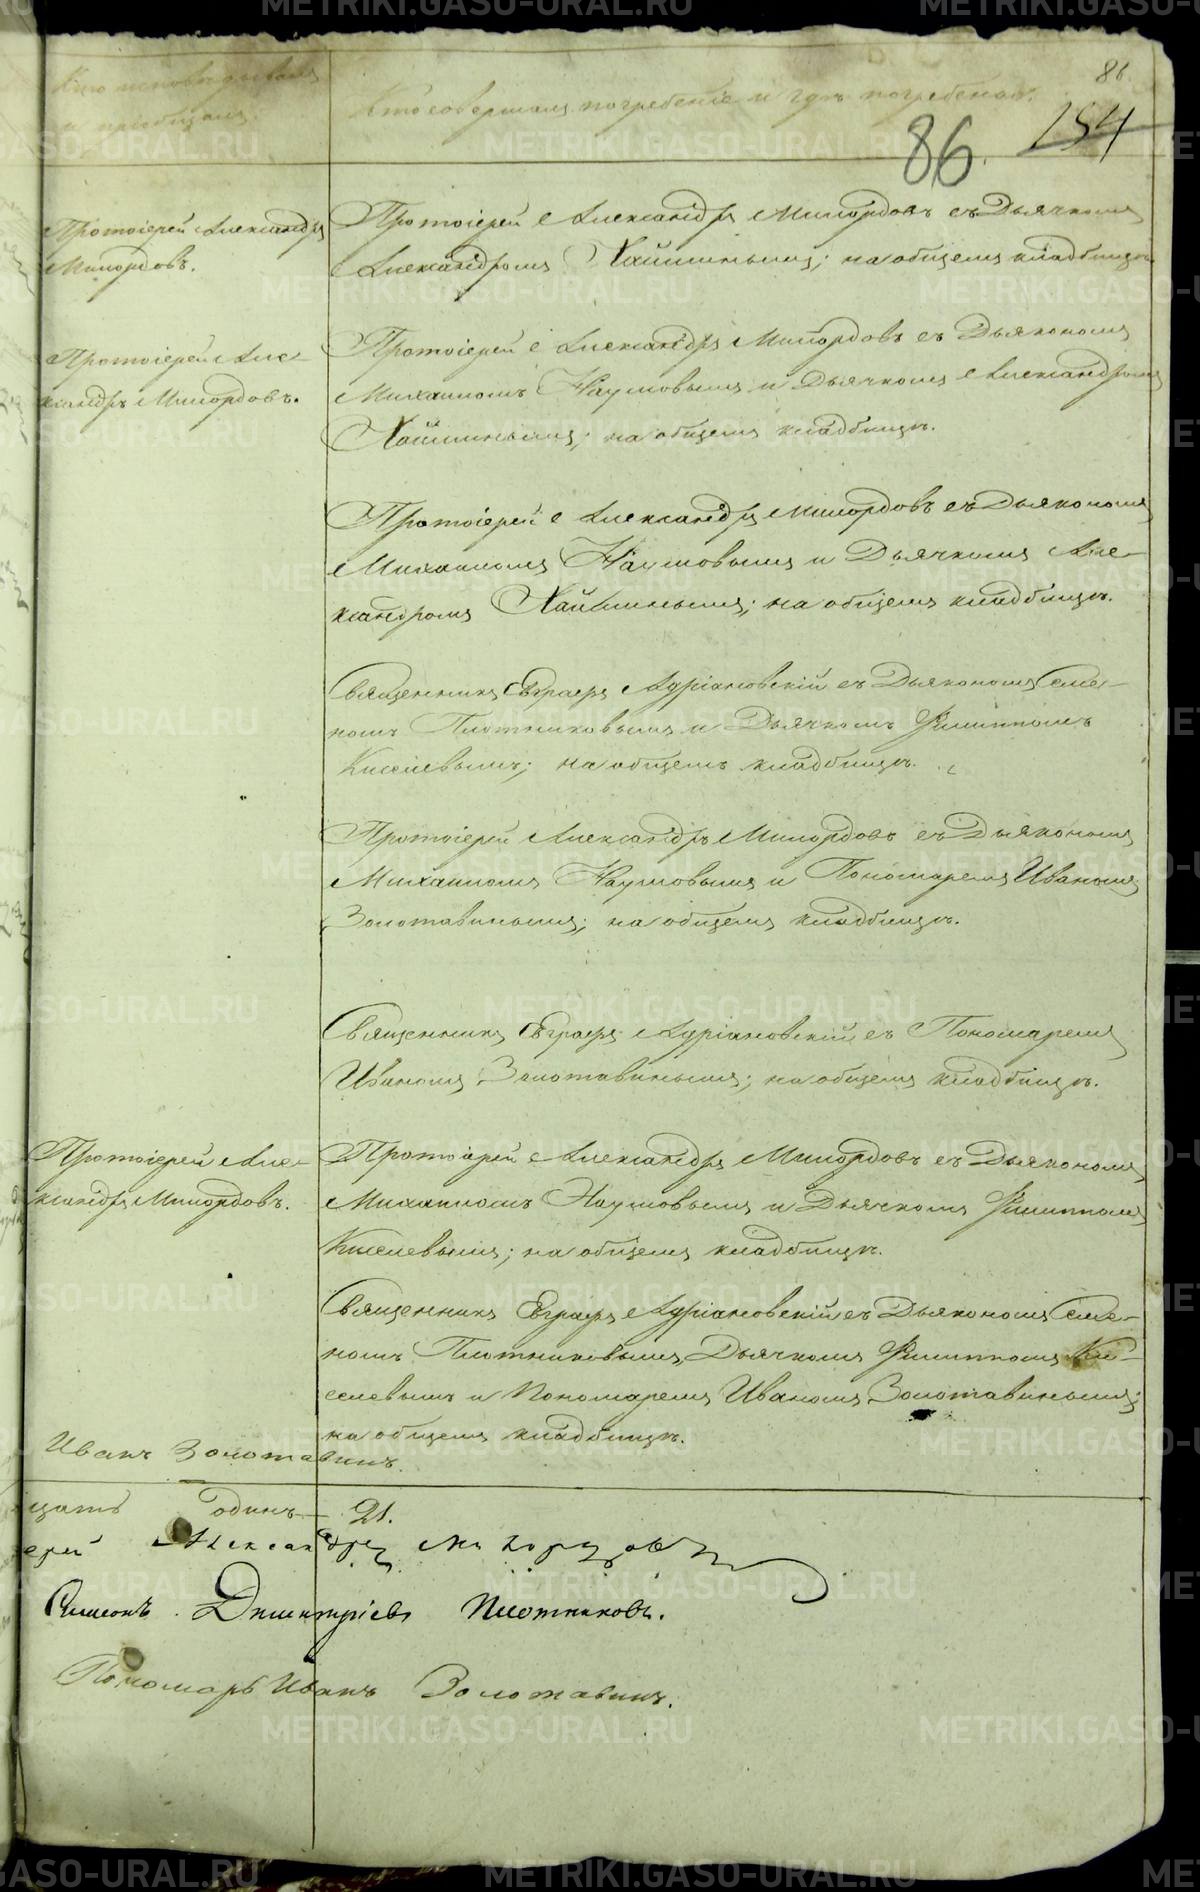 Кто исповѣдывалъ
и пріобщалъ.
Кто совершалъ погребеніе и гдѣ погребены.
86.
86.
154
Протоіерей Александръ
Милордовъ.
Протоіерей Александръ Милордовъ съ Дьячкомъ
Александромъ Хайминымъ; на общемъ кладбищѣ.
Протоіерей Але-
ксандръ Милордовъ.
Протоіерей Александръ Милордовъ съ Дьякономъ
Михаиломъ Наумовымъ и Дьячкомъ Александромъ
Хайминымъ; на общемъ кладбищѣ.
Протоіерей Александръ Милордовъ съ Дьякономъ
Михаиломъ Наумовымъ и Дьячкомъ Але-
ксандромъ Хайминымъ; на общемъ кладбищѣ.
Священникъ Евграфъ Адріановскій съ Дьякономъ Симе-
номъ Плотниковымъ и Дьячкомъ Филиппомъ
Киселевымъ; на общемъ кладбищѣ.
Протоіерей Александръ Милордовъ съ Дьякономъ
Михаиломъ Наумовымъ и Пономаремъ Иваномъ
Золотавинымъ; на общемъ кладбищѣ.
Священникъ Евграфъ Адріановскій съ Пономаремъ
Иваномъ Золотавинымъ; на общемъ кладбищѣ.
Протоіерей Але-
ксандръ Милордовъ.
Протоіерей Александръ Милордовъ съ Дьякономъ
Михаиломъ Наумовымъ и Дьячкомъ Филиппомъ
Киселевымъ; на общемъ кладбищѣ.
Священникъ Евграфъ Адріановскій съ Дьякономъ Симе-
номъ Плотниковымъ, Дьячкомъ Филиппомъ Ки-
селевымъ и Пономаремъ Иваномъ Золотавинымъ;
на общемъ кладбищѣ.
Иванъ Золотавинъ.
цать одинъ 21.
ерей Александръ Милордовъ
Симеонъ Димитріевъ Плотниковъ.
Пономарь Иванъ Золотавинъ.
METRIKI.GASO-URAL.RU